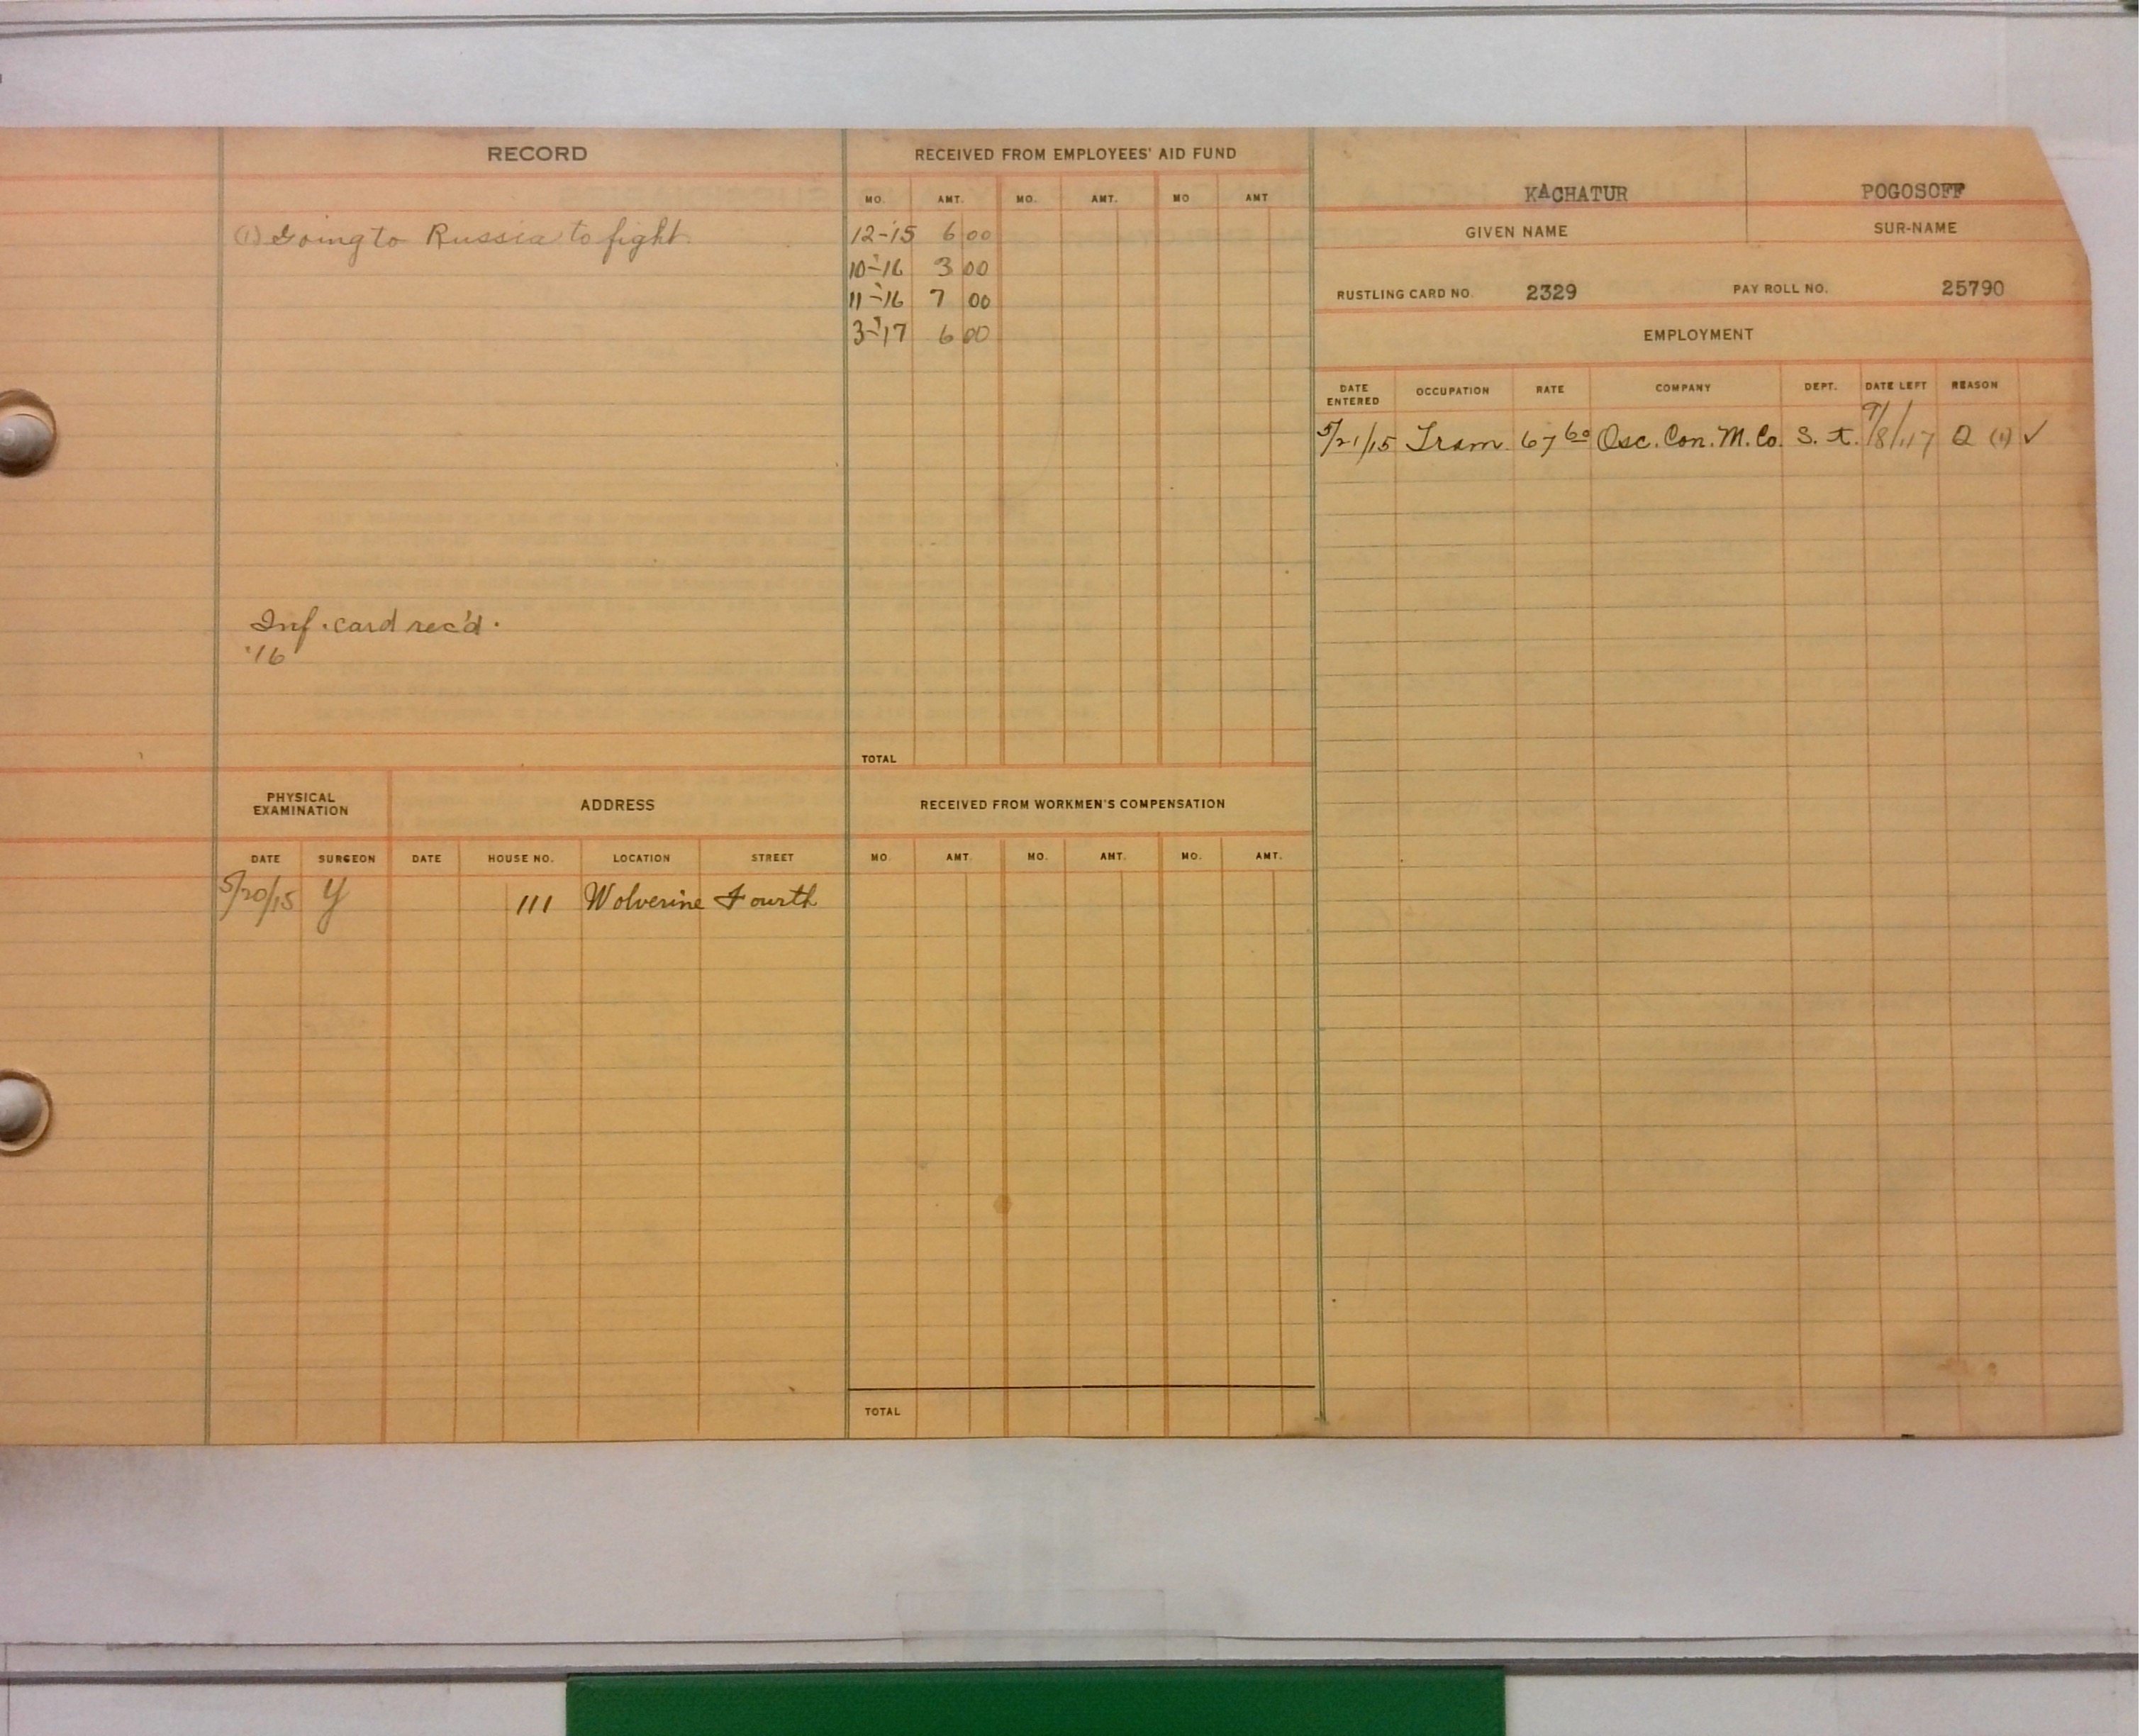 RECORD
(1) Going to Russia to fight.
Inf. card rec'd.
'16
PHYSICAL EXAMINATION
ADDRESS
DATE SURGEON DATE HOUSE NO. LOCATION STREET
5/20/15 Y 111 Wolverine Fourth
RECEIVED FROM EMPLOYEES' AID FUND
MO. AMT. MO. AMT. MO AMT
12-15 6 00
10-'16 3 00
11-'16 7 00
3-'17 6 00
TOTAL
RECEIVED FROM WORKMEN'S COMPENSATION
MO. AMT. MO. AMT. MO. AMT.
TOTAL
KACHATUR POGOSOFF
GIVEN NAME SUR-NAME
RUSTLING CARD NO. 2329 PAY ROLL NO. 25790
EMPLOYMENT
DATE ENTERED OCCUPATION RATE COMPANY DEPT. DATE LEFT REASON
5/21/15 Tram. 67 60 Osc. Con. M. Co. S. t. 9/8/17 Q (1) ✓